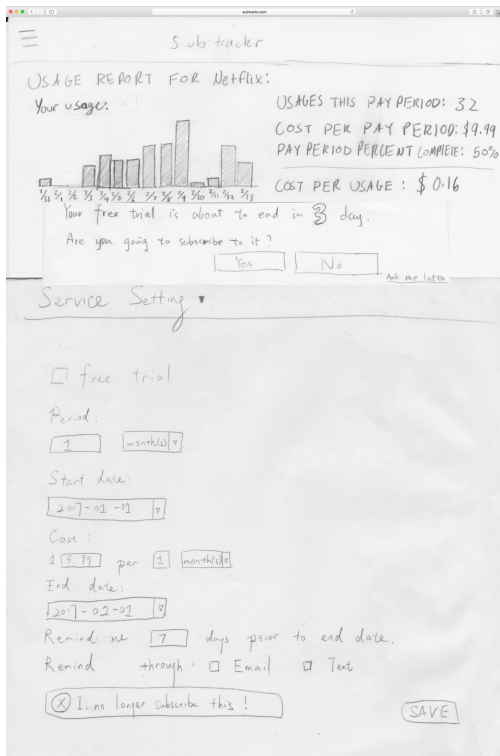 subtrackr.com
Subtrackr
USAGE REPORT FOR Netflix:
Your usage:
USAGES THIS PAY PERIOD: 32
COST PER PAY PERIOD: $9.99
PAY PERIOD PERCENT COMPLETE: 50%
COST PER USAGE: $0.16
1/31 2/1 2/2 2/3 2/4 2/5 2/6 2/7 2/8 2/9 2/10 2/11 2/12 2/13
Your free trial is about to end in 3 day.
Are you going to subscribe to it?
Yes No
Ask me later
Service Setting
free trial
Period:
1 month(s)
Start date:
2017-01-01
Cost:
$ 9.99 per 1 month(s)
End date:
2017-02-01
Remind me 7 days prior to end date.
Remind through: Email Text
X I no longer subscribe this!
SAVE